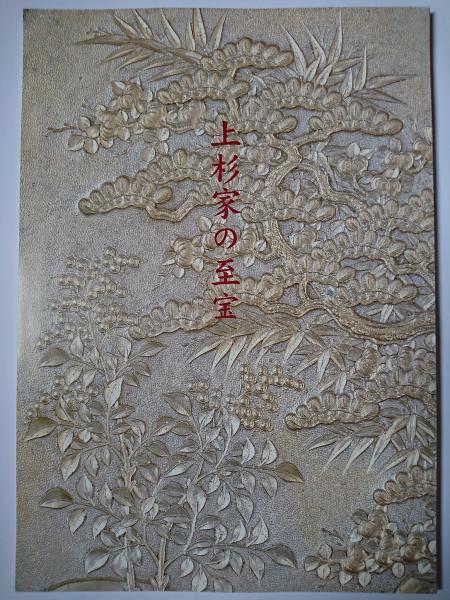 上杉家の至宝